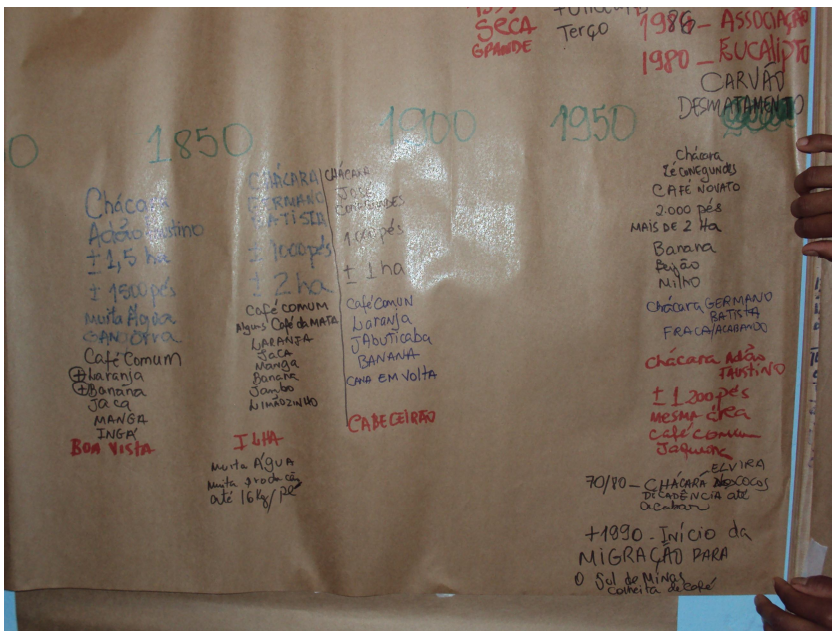 SECA
GRANDE
Terço
1986 - ASSOCIAÇÃO
1980 - EUCALIPTO
CARVÃO
DESMATAMENTO
1.850
1900
1950
Chácara
Adão Faustino
± 1,5 ha
± 1500 pés
Muita Água
Café Comum
+ Laranja
+ Banana
Jaca
MANGA
INGÁ
BOA VISTA
CHÁCARA
GERMANO
BATISTA
± 1000 pés
± 2 ha
Café COMUM
Alguns Café da MATA
LARANJA
JACA
Manga
Banana
Jambo
LIMÃOZINHO
ILHA
Muita ÁGUA
Muita produção
até 16 Kg/pé
CHÁCARA
José
1000 pés
± 1 ha
Café Comun
Laranja
JAbuticaba
BANANA
CANA EM VOLTA
CABECEIRÃO
Chácara
Zé CONEGUNDES
CAFÉ NOVATO
2.000 pés
MAIS DE 2 Ha
Banana
Feijão
Milho
Chácara GERMANO
BATISTA
FRACA/ACABANDO
Chácara Adão
FAUSTINO
± 1200 pés
MESMA área
Café comum
ELVIRA
70/80 - CHÁCARA COCOS
DECADÊNCIA até
acabar
+1990 - Início da
MIGRAÇÃO PARA
O Sul de Minas
Colheita de Café